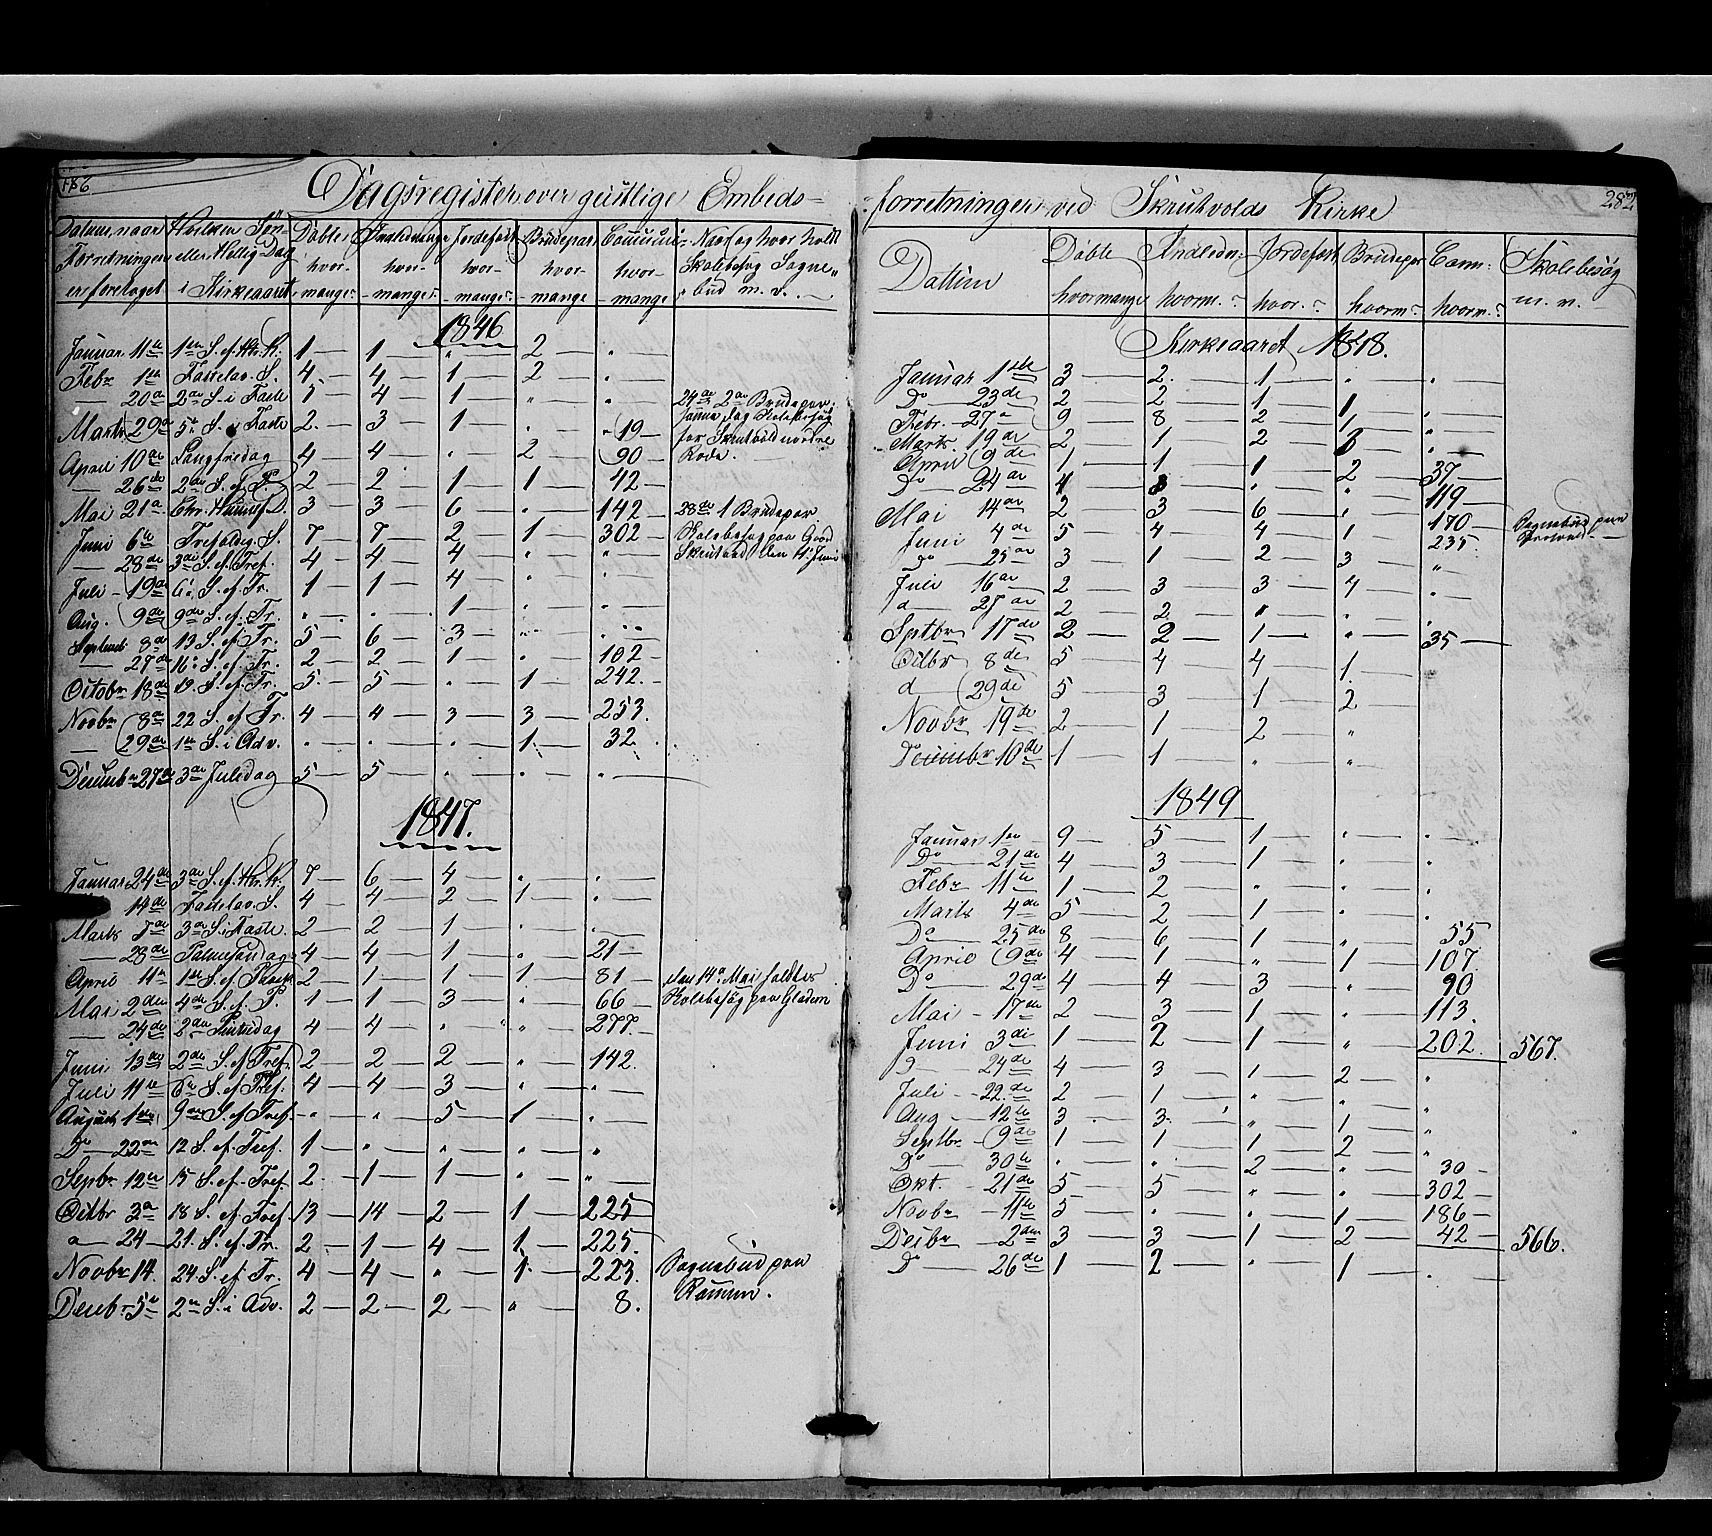 Dagsregister over geistlige Embeds-
Datum naar | Hvilken Søn- | Døbte | Introd. | Jordef. | Brudepar | Communi- | Naar og hvor holdt
Forretningen | eller Hellig Dag | hvor- | hvor- | hvor- | hvor- | hvor- | Skolebesøg Sogne-
er foretaget | i Kirkeaaret | mange | mange | mange | mange | mange | bud m. v.
1846
Januar 11te 1ste S. ef. H. 3 K. 1 — 1 — " — 2 — "
Febr 1ste Fastelav. S. 4 — 4 — 1 — 2 — "
— 20de 2de S. i Faste 5 — 4 — 1 — " — " 24de 2de Brudepar.
Marts 29de 5te S. i Faste 2 — 3 — 1 — " — 19 — Samme dag Skolebesøg
for Skrutvold nordre
April 10de Langfredag 4 — 4 — " — 2 — 90 — Rode.
— 26de 2de S. ef. P. 2 — 2 — 1 — 1 — 42 —
Mai 21de Chr. Himmelf. D. 3 — 3 — 6 — " — 142 — 28de 1 Brudepar
Juni 6te Trefoldig. S. 7 — 7 — 2 — 1 — 302 — Skolebesøg paa Gaard
— 28de 3die S. ef. Tref. 4 — 4 — 4 — " — " Skrutvold den 4de Juni
Juli 19de 6te S. ef. Tr. 1 — 1 — 4 — " — "
Aug. 9de 9de S. ef. Tr. " — " — 1 — " — "
Septemb 8de 13 S. ef. Tr. 5 — 6 — 3 — " — "
— 27de 16 S. ef. Tr. 2 — 2 — 1 — " — 102 —
Octobr 18de 19. S. ef. Tr. 5 — 5 — " — 1 — 242 —
Novbr 8de 22 S. ef. Tr. 4 — 4 — 3 — 3 — 253.
— 29de 1ste S. i Adv. " — " — " — 1 — 32.
Decembr 27de 3die Juledag 5 — 5 — " — " — "
1847.
Januar 24de 3die S. ef. H. 3 K. 7 — 6 — 4 — " — "
14de Fastelav. S. 4 — 4 — 2 — 1 — "
Marts 7de 3die S. i Faste. 2 — 2 — 1 — " — "
— 28de Palmesøndag 4 — 4 — 1 — " — 21 —
April 11te 1ste S. ef. Paask 2 — 1 — 1 — 1 — 81 — den 14de Mai holdtes
Mai 2den 4de S. ef. P. 1 — 1 — 3 — " — 66 — Skolebesøg paa Gladem
— 24de 2den Pintsedag 4 — 4 — " — " — 277.
Juni 13de 2de S. ef. Tref. 2 — 2 — 2 — " — 142.
Juli 11te 6te S. ef. Tref. 4 — 4 — 3 — " — "
August 1ste 9de S. ef. Tref. " — " — 5 — 1 — "
Do — 22de 12 S. ef. Tref. 1 — " — " — " — "
Sepbr 12te 15 S. ef. Tref 2. — 1 — 1 — " — "
Octbr 3die 18 S. ef. Tref 13 — 14 — 2 — 1 — 225
d — 24 — 21. S. ef. Tr. 2 — 1 — 4 — 1 — 225.
Novbr 14. 24. S. ef. Tr. 4 — 4 — " — 1 — 223. Sognebud paa
Decbr 5te 2den S. i Adv. 2 — 2 — 2 — " — 8.
282
forretninger ved Skrutvolds Kirke
Datum | Døbte | Introd. | Jordefæst | Brudepar | Com- | Skolebesøg
hvormange | hvorm. | hvor. | hvorm. | hvorm. | m. v.
Kirkeaaret 1848.
Januar 1ste 3 — 2. — 1 — " — "
Do 23de 2 — 2 — 1 — 1 — "
Febr. 27de 9 — 8 — 2 — 1 — "
Marts 19de 2 — 1 — 2 — — "
April 9de 1 — 1 — 1 — 2 — 37 —
Do 24de — " — " — 119 —
Mai 14de 2 — 3 — 6 — " — 170 — Sognebud paa
Juni 4de 5 — 4 — 4 — 1 — 235.
Do 25de 3 — 1 — 2 — 3 — "
Juli 16de 2 — 3 — 3 — 4 — "
d — 27de 2 — 2 — " — " — "
Sptbr 17de 2 — 2 — 1 — " — 35 —
Octbr 8de 5 — 4 — 4 — 1.
d — 29de 5 — 3 — 1 — 2 —
Novbr 19de 2 — 1 — 2 — "
Decembr 10de 1 — 1 — " — "
1849
Januar 1ste 9 — 5 — 1 — " — "
Do — 21de 4 — 3 — 1 — " — "
Febr 11te 1 — 2 — " — " — "
Marts 4de 5 — 2 — 1 — " — "
Do — 25de 8 — 6 — 1 — " — 55
April 9de 4 — 1 — " — 1 — 107
Do 29de 4 — 4 — 3 — " — 90
Mai — 17de 2 — 3 — 1 — " — 113.
Juni 3die 1 — 2 — 1 — " — 202. 567.
D 24de 4 — 3 — 1 — 2 — "
Juli — 22de 2 — 1 — " — " — "
Aug — 12te 3 — 3 — " — 1 — "
Septbr 9de 1 — 1 — 1 — 2 — "
Do 30te " — " — 2 — " — 30 —
Okt. — 21de 5 — 5 — " — " — 302 —
Novbr — 11te 5 — " — " — 1 — 186 —
Decbr — 2den 3 — 3 — 1 — 2 — 42 — 566.
Do — 26de 1 — 2 — " — 1 — "